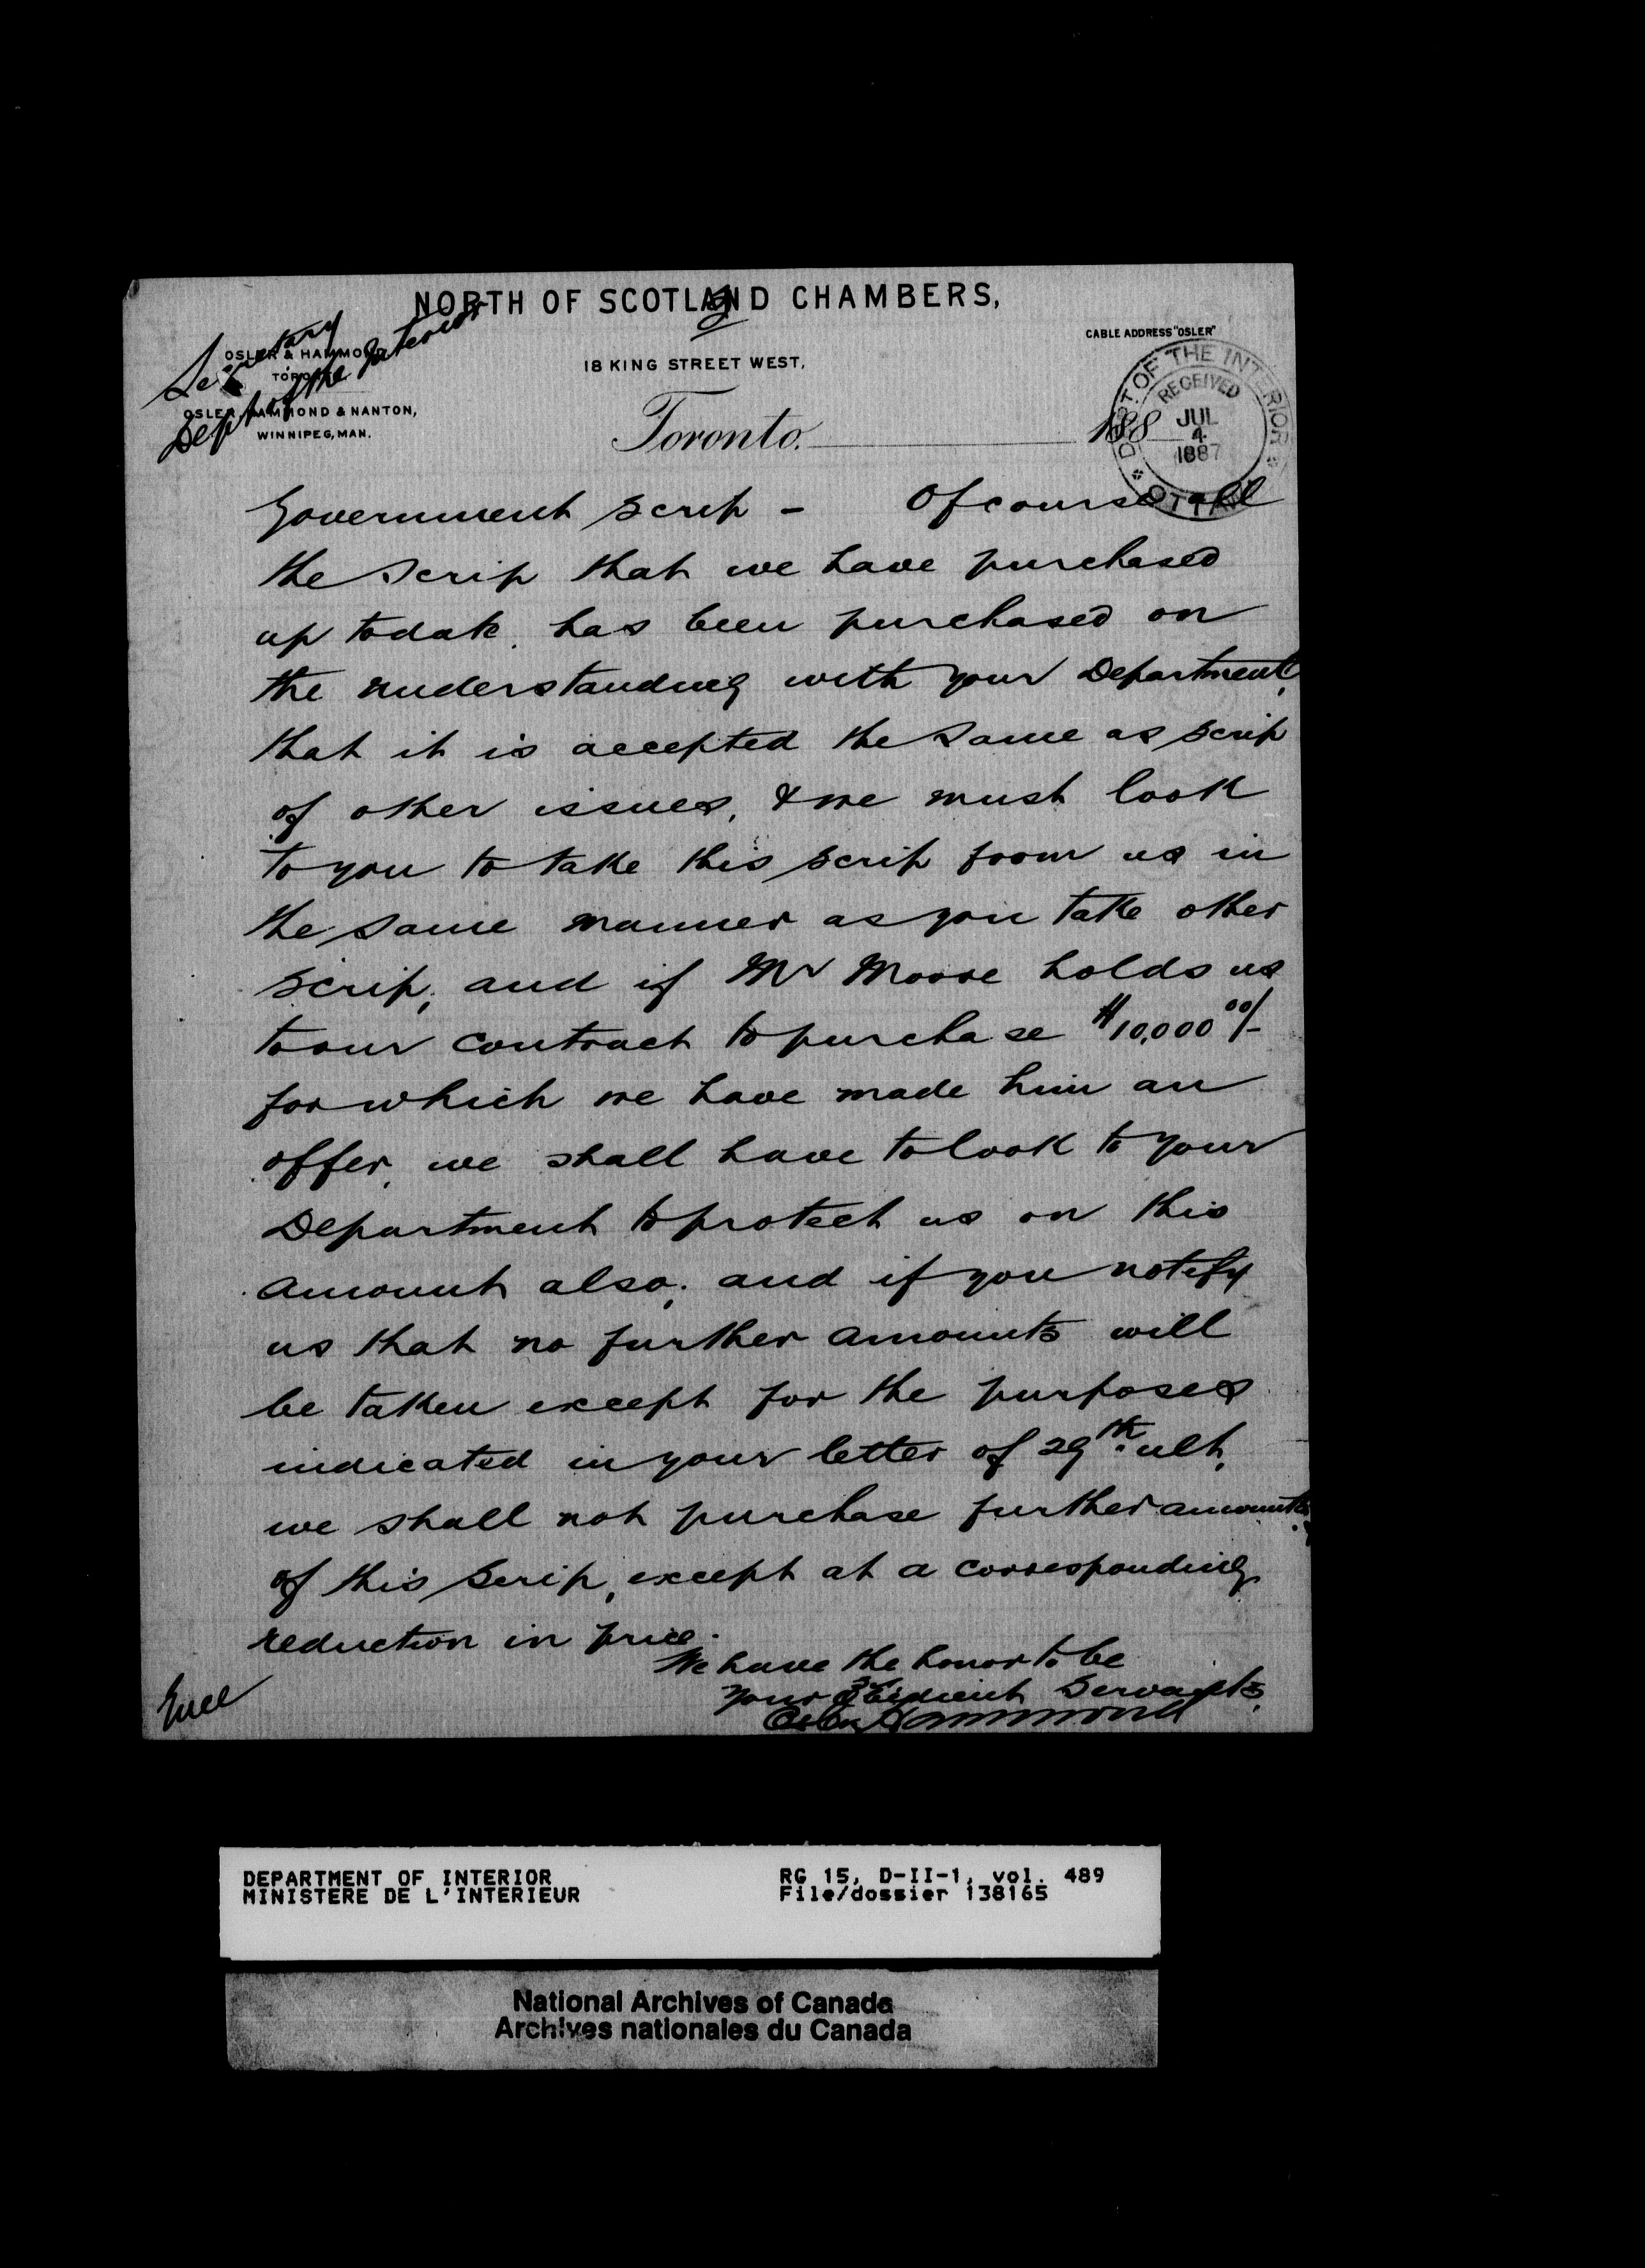 NORTH OF SCOTLAND CHAMBERS,
2
CABLE ADDRESS "OSLER"
Secretary
Dept of the Interior
OSLER & HAMMOND
TORONTO.
18 KING STREET WEST,
OSLER, HAMMOND & NANTON,
WINNIPEG, MAN.
Toronto. 188
DEPT. OF THE INTERIOR
RECEIVED
JUL
4
1887
OTTAWA
Government scrip - Of course all
the scrip that we have purchased
up to date, has been purchased on
the understanding with your Department,
that it is accepted the same as scrip
of other issues, & we must look
to you to take this scrip from us in
the same manner as you take other
scrip, and if Mr Moore holds us
to our contract to purchase $10,000 00/-
for which we have made him an
offer, we shall have to look to your
Department to protect us on this
amount also; and if you notify
us that no further amounts will
be taken except for the purposes
indicated in your letter of 29th ult,
we shall not purchase further amounts
of this scrip, except at a corresponding
reduction in price.
We have the honor to be
Your Obedient Servants,
Osler Hammond
Encl
DEPARTMENT OF INTERIOR
MINISTERE DE L'INTERIEUR
RG 15, D-II-1, vol. 489
File/dossier 138165
National Archives of Canada
Archives nationales du Canada